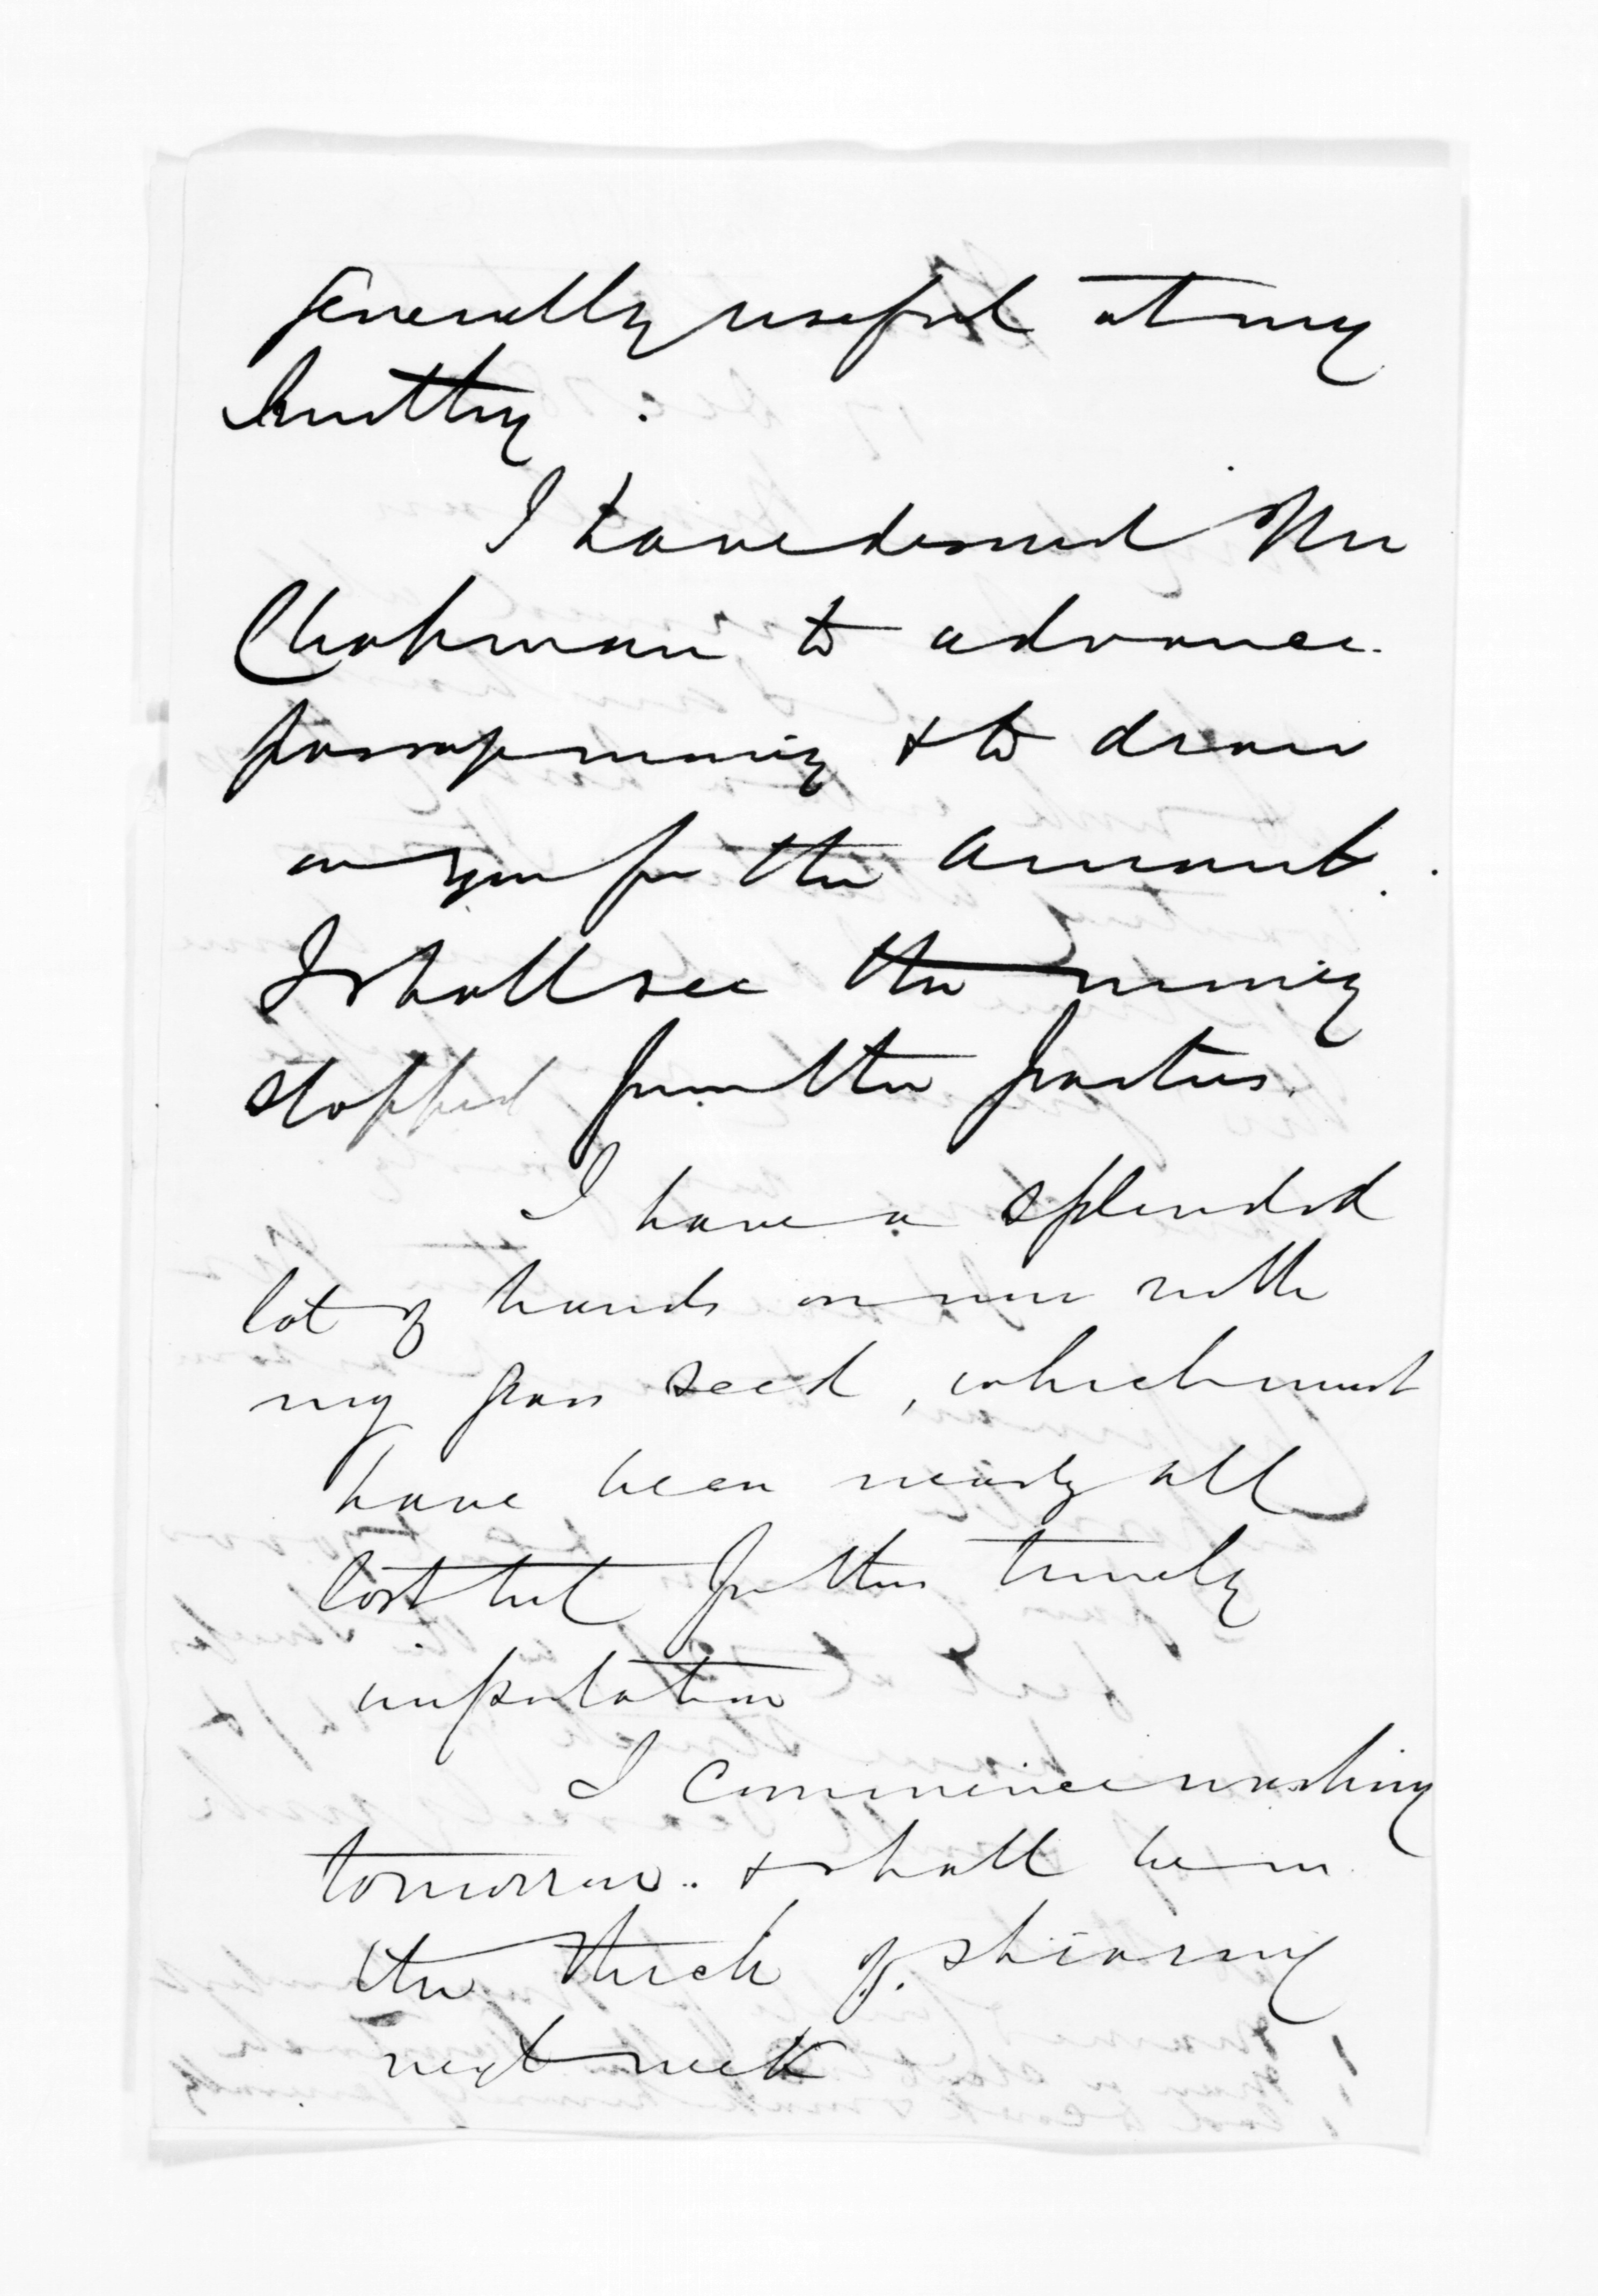 generally useful at my
smithy.
I have desired Mr
Chapman to advance
passage money & to draw
on you for the amount.
I shall see the money
stopped from the parties.
I have a splendid
lot of hands on now with
my grass seed, which must
have been nearly all
lost but for this timely
importation
I commence washing
tomorrow. & shall be in
the thick of shearing
next week